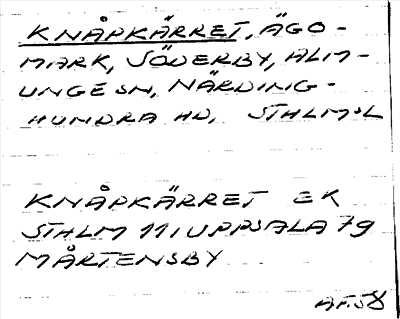 KNÅPKÄRRET, ÄGO-
MARK, SÖDERBY, ALM-
UNGE SN, NÄRDING-
HUNDRA HD, STHLMSL
KNÅPKÄRRET EK
STHLM 111 UPPSALA 79
MÅRTENSBY
AF.58